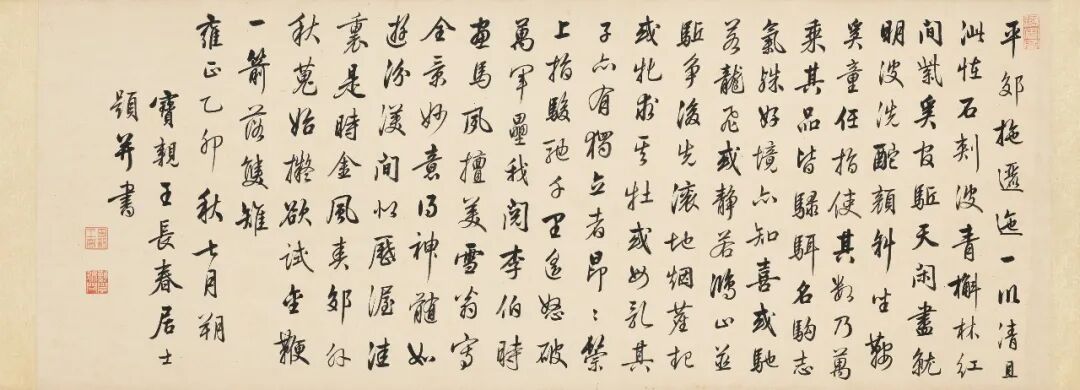 平郊拖邐迤一川清且
泚怪石刺波青槲林紅
間紫奚官驅天閑盡就
明波洗酡顏斜坐鞍
奚童任指使其數乃萬
乘其品皆騄駬名駒志
氣殊好境亦知喜或馳
若龍飛或靜若鴻止並
驅爭後先滾地烟塵起
或牝求其牡或母乳其
子亦有獨立者昂〻
上指駿馳千里意怒破
萬軍壘我閱李伯時
畫馬夙擅美雪翁寫
全景妙意得神髓如
遊汾渼間怳歷渥洼
裏是時金風爽郊外
秋蒐始擬欲試金鞭
一箭落雙雉
雍正乙卯秋七月朔
寶親王長春居士
題并書